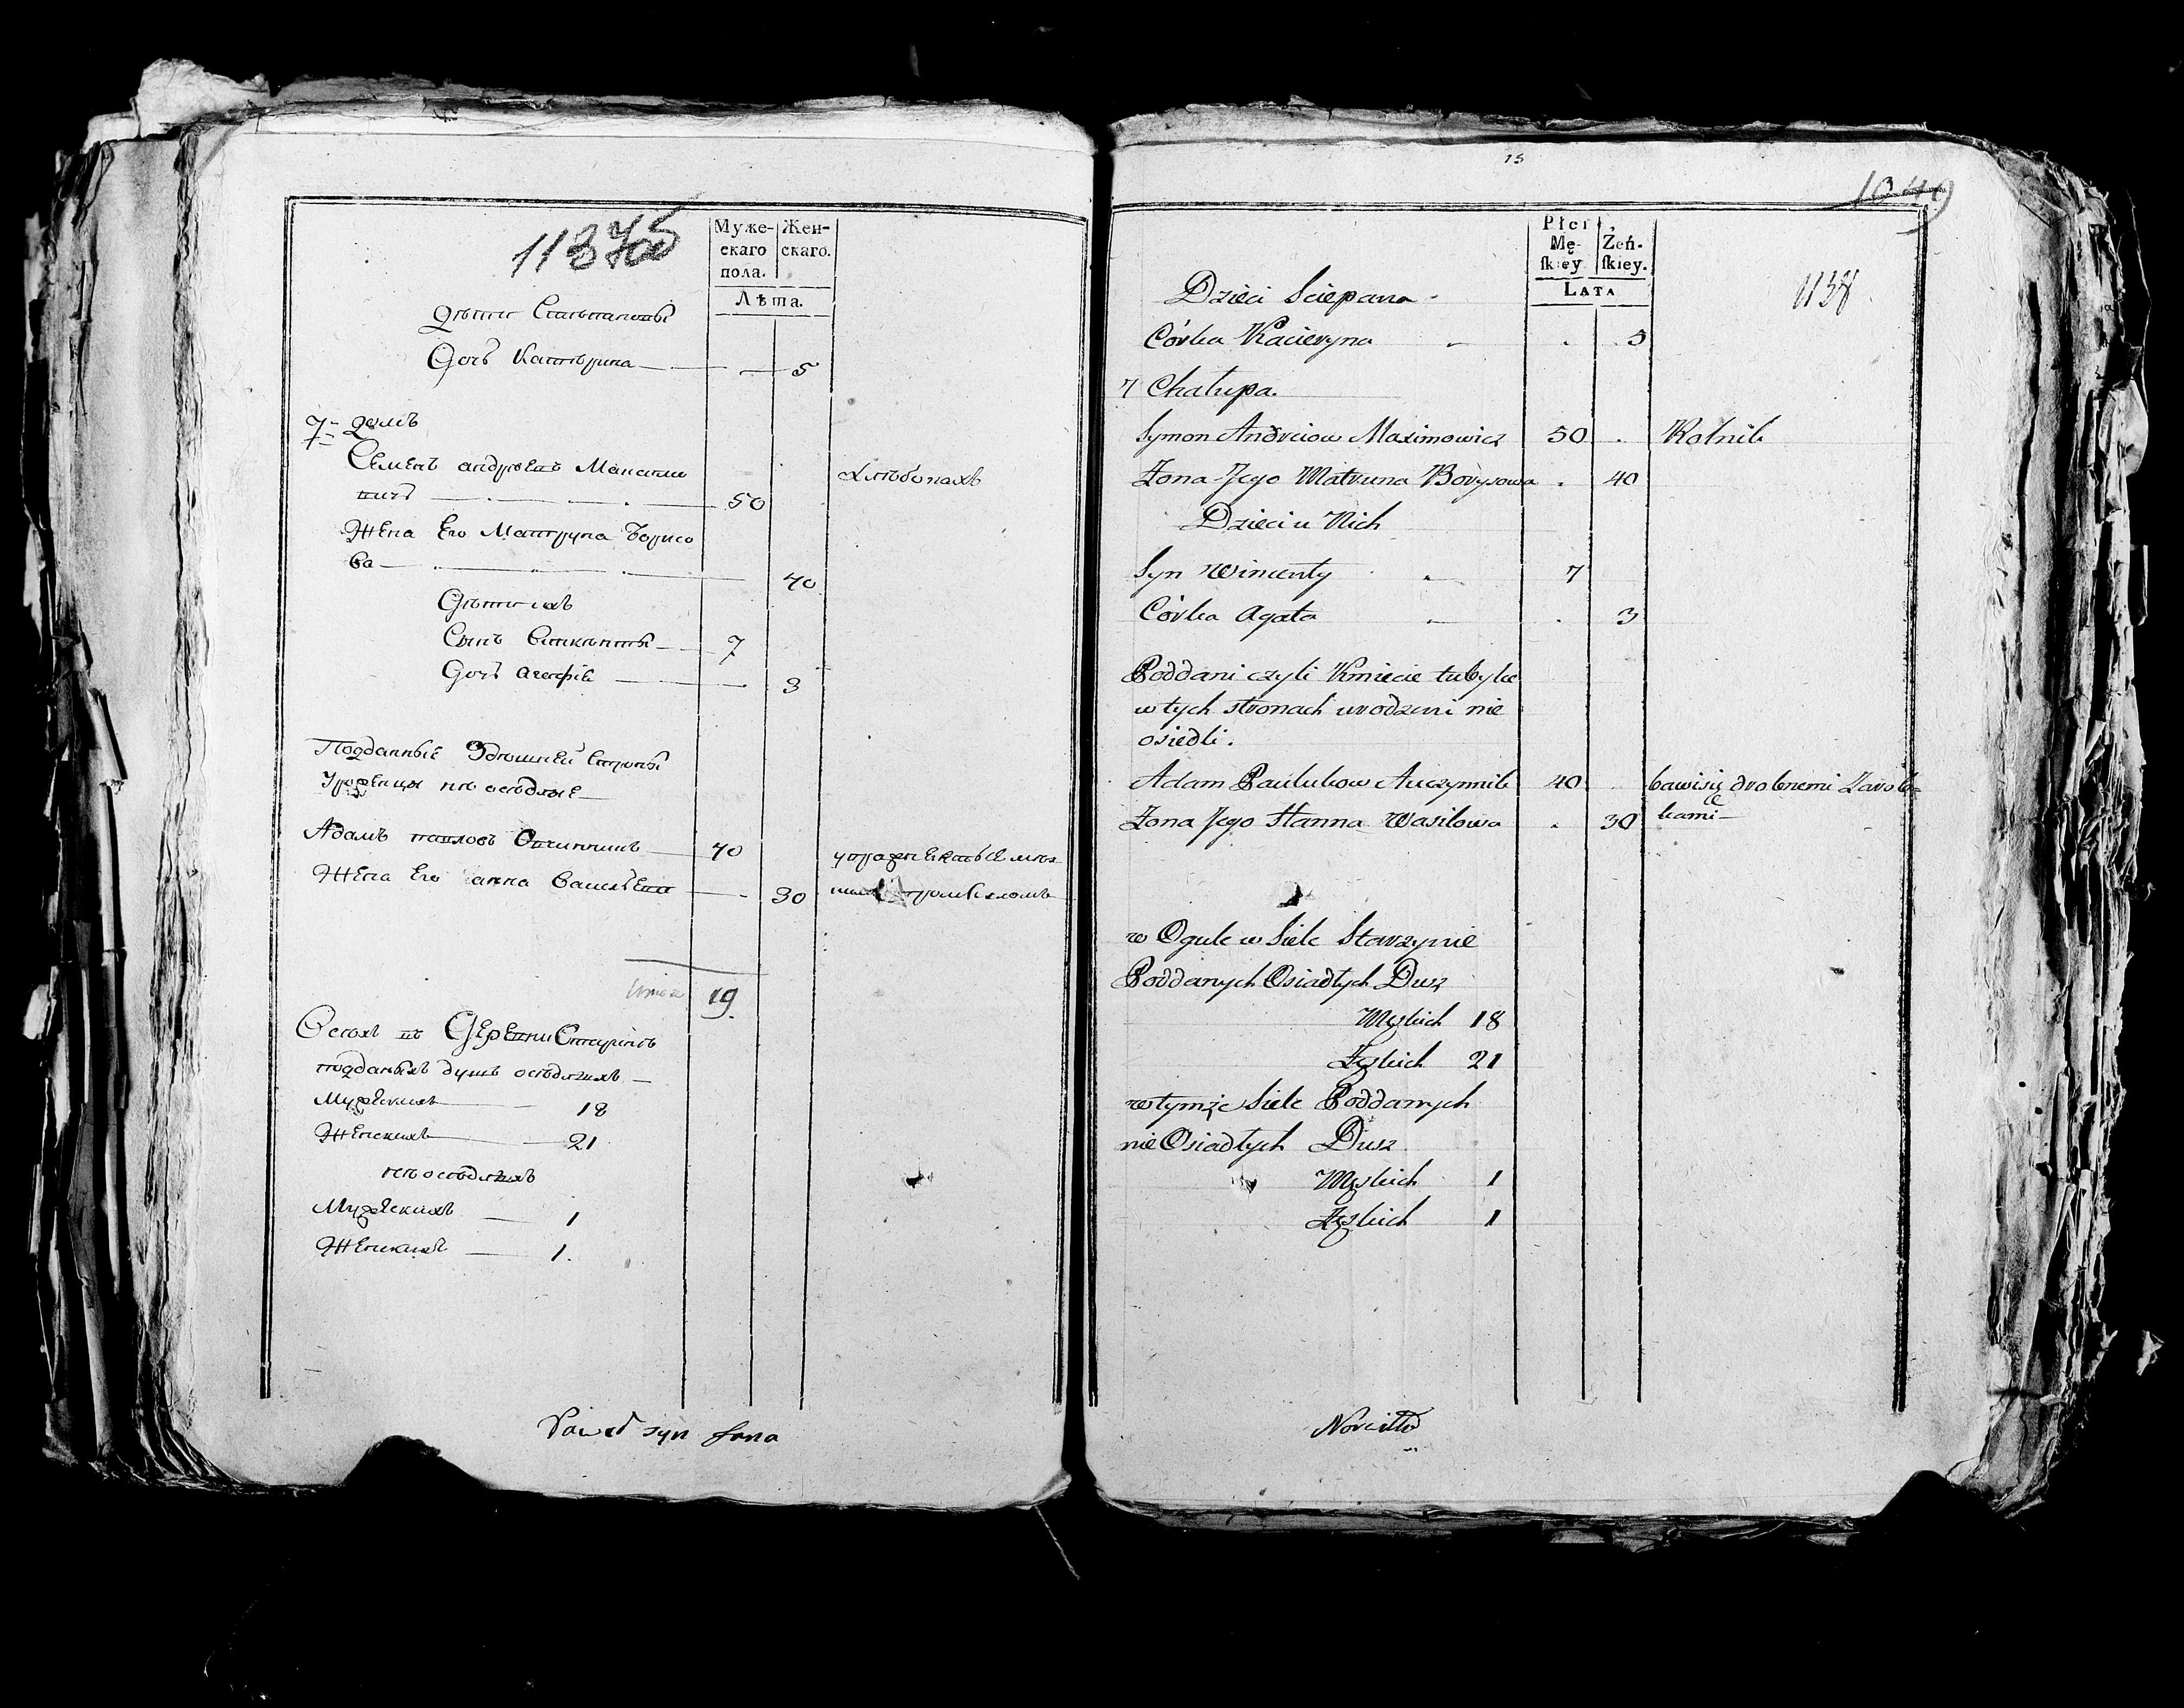 Муже-
скаго
пола.
Жен-
скаго.
Лѣта.
Дѣти Степановы
Дочь Катерина 5
7 Домъ
Семенъ андреевъ Макси
вичъ 50 хлѣбопахъ
Жена Его Матруна Борисо
ва 40
Дѣти ихъ
Сынъ Викенты 7
Дочь Агафія 3
Подданные Здешней Стороны
Уроженцы не оседлые
Адамъ павловъ 40
Жена Его анна Васильева 30
19
Всехъ въ Деревни Старине
подданыхъ душъ оседлыхъ
Мужескихъ 18
Женскихъ 21
неоседлыхъ
Мужескихъ 1
Женскихъ 1.
Paweł syn Jana
15
1049
Płci
Mę-
ſkiey
Żeń-
ſkiey.
LATA
1138
Dzieci Sciepana
Córka Kacieryna . 5
7 Chałupa.
Symon Andreiow Maximowicz 50 . Rolnik
Żona Jego Matruna Borysowa . 40
Dzieci u Nich
Syn Wincenty 7
Córka Agata . 3
Poddani czyli Kmiecie tubylce
w tych stronach urodzeni nie
osiedli.
Adam Paulukow 40 bawi się drobnemi Zarob=
Żona Jego Hanna Wasilowa . 30 kami
w Ogule w Siele Starzynie
Poddanych Osiadłych Dusz
Męskich 18
Żęskich 21
w tymże Siele Poddanych
nie Osiadłych Dusz
Męskich 1
Żęskich 1